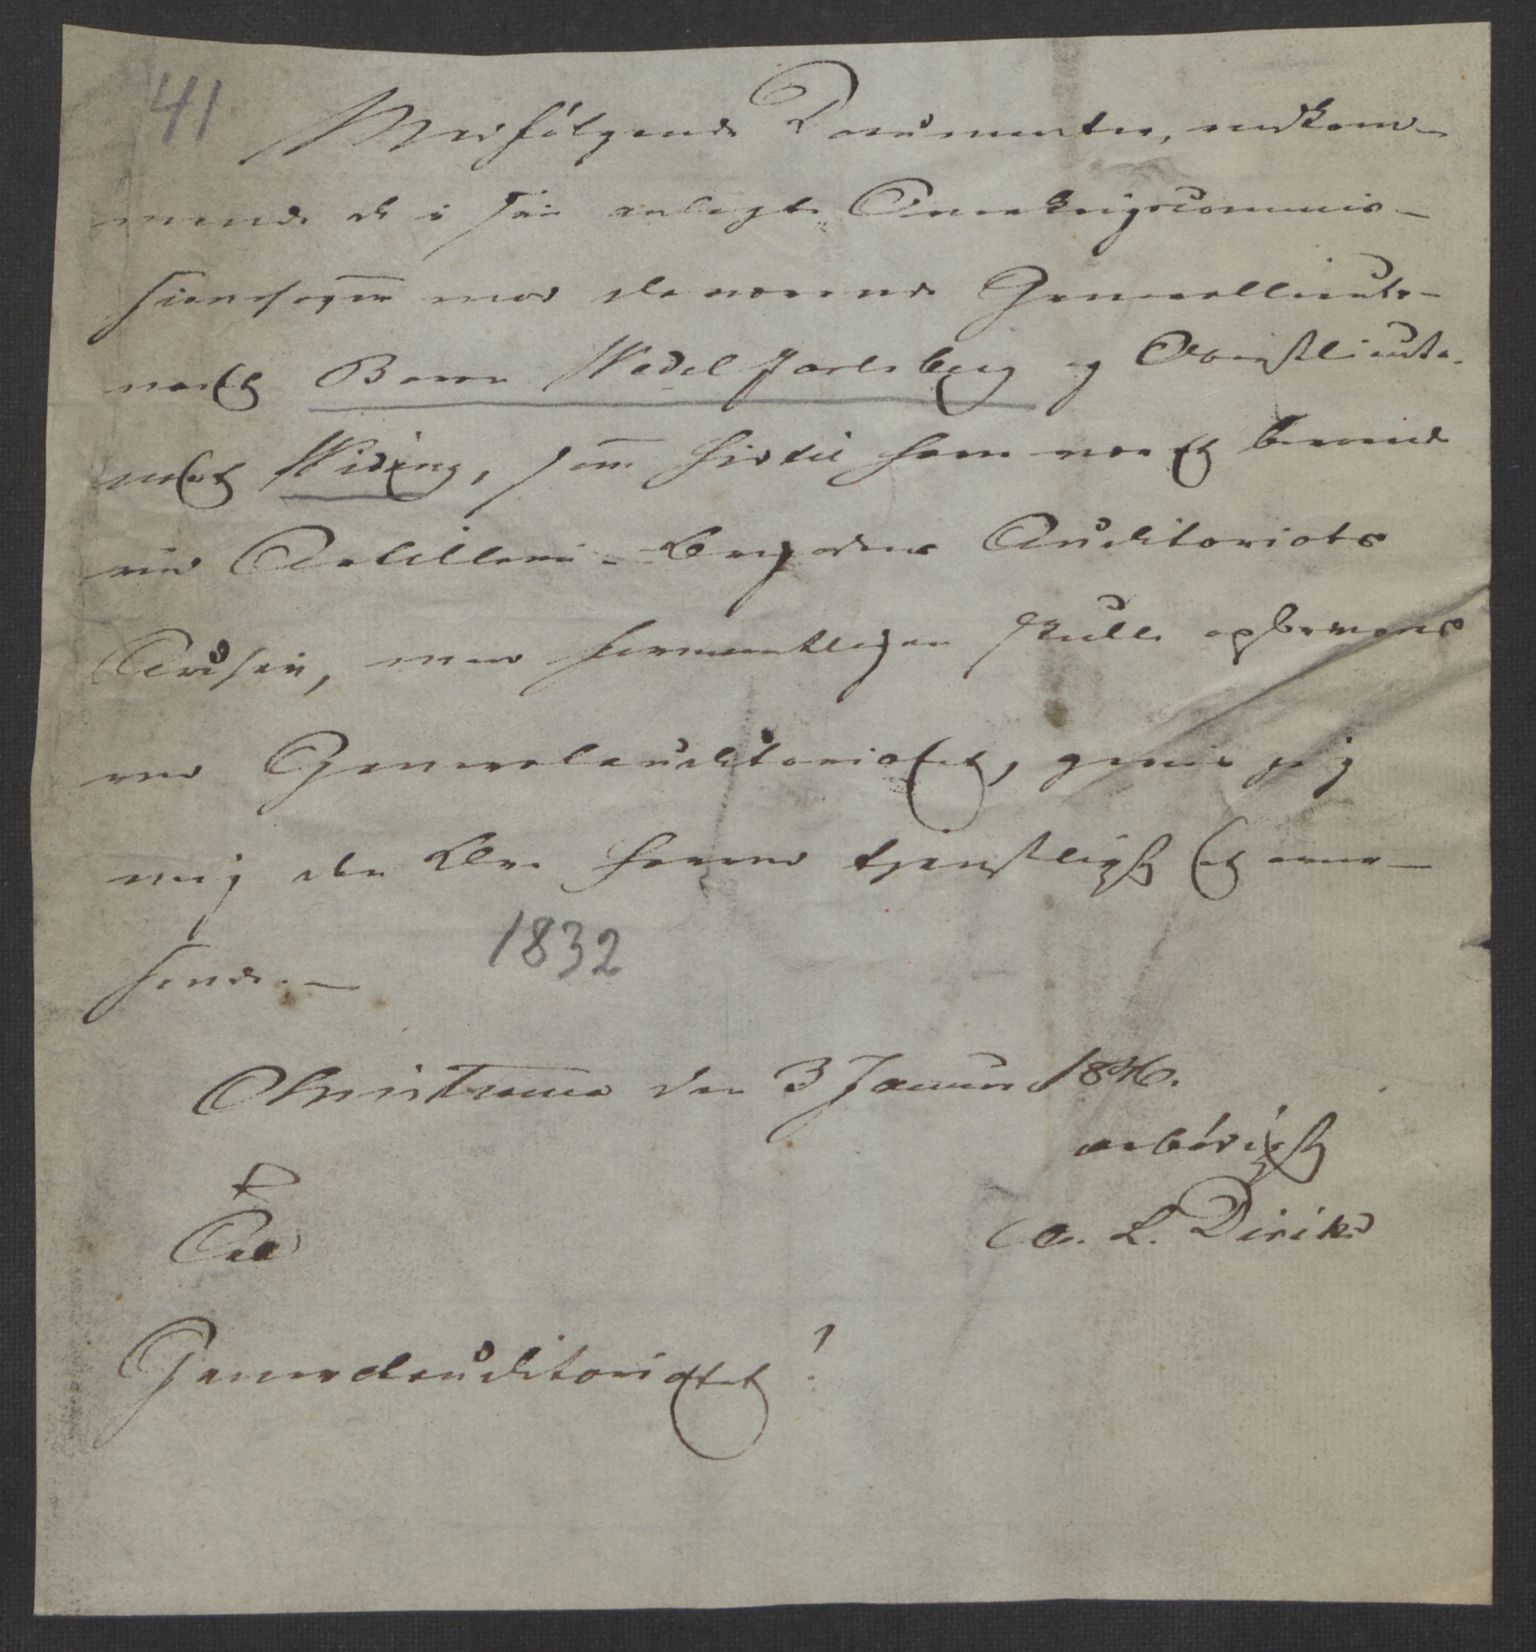 41
Medfølgende Documenter, vedkom-
mende de i sin anlagte Overkrigscommis-
sionssager mod daværende Generallieute-
nant Baron Wedel Jarlsberg og Oberstlieute-
nant Widing, som hidtil have været bevarede
ved Artilleri-Brigadens Auditoriats
Archiv, men formentligen skulle opbevares
ved Generalauditoriatet, giver jeg
mig den Ære herved tjenstligst at over-
sende. —
1832
Christiania den 3 Januar 1846.
ærbødigst
C. L. Diriks
Til
Generalauditoriatet!